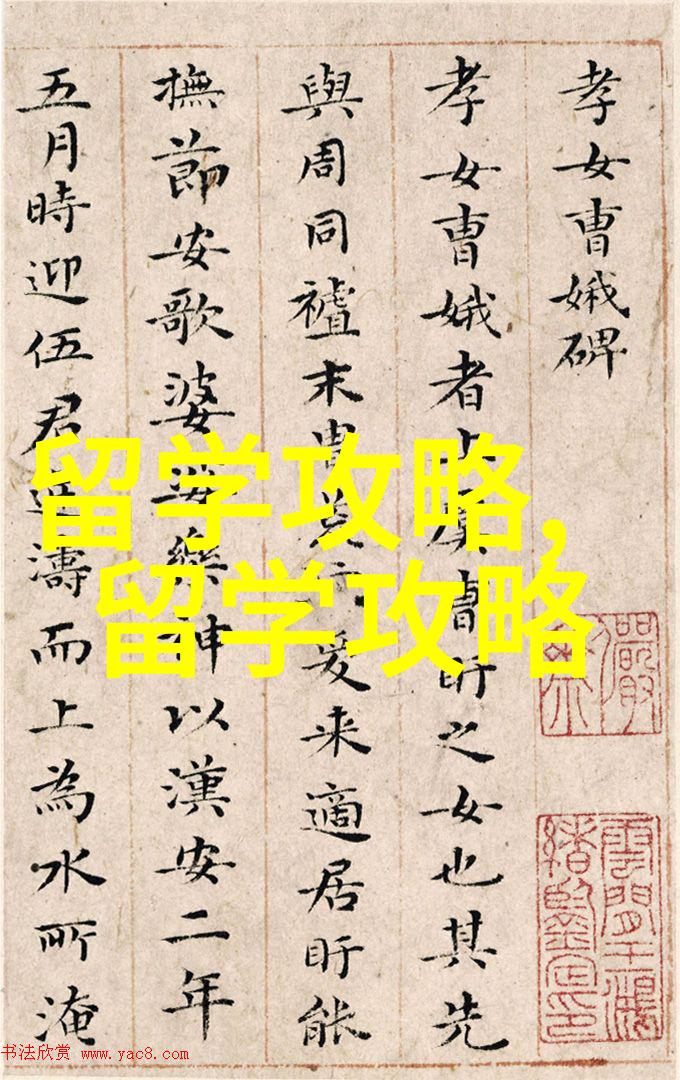 孝女曹娥碑
孝女曹娥者上虞曹盱之女也其先
與周同末胄荒爰来適居盱能
撫節安歌婆娑樂神以漢安二年
五月時迎伍君逆濤而上為水所淹
留学攻略,
留学攻略
雲間王鴻
緒鑒定印
书法欣赏 www.yac8.com